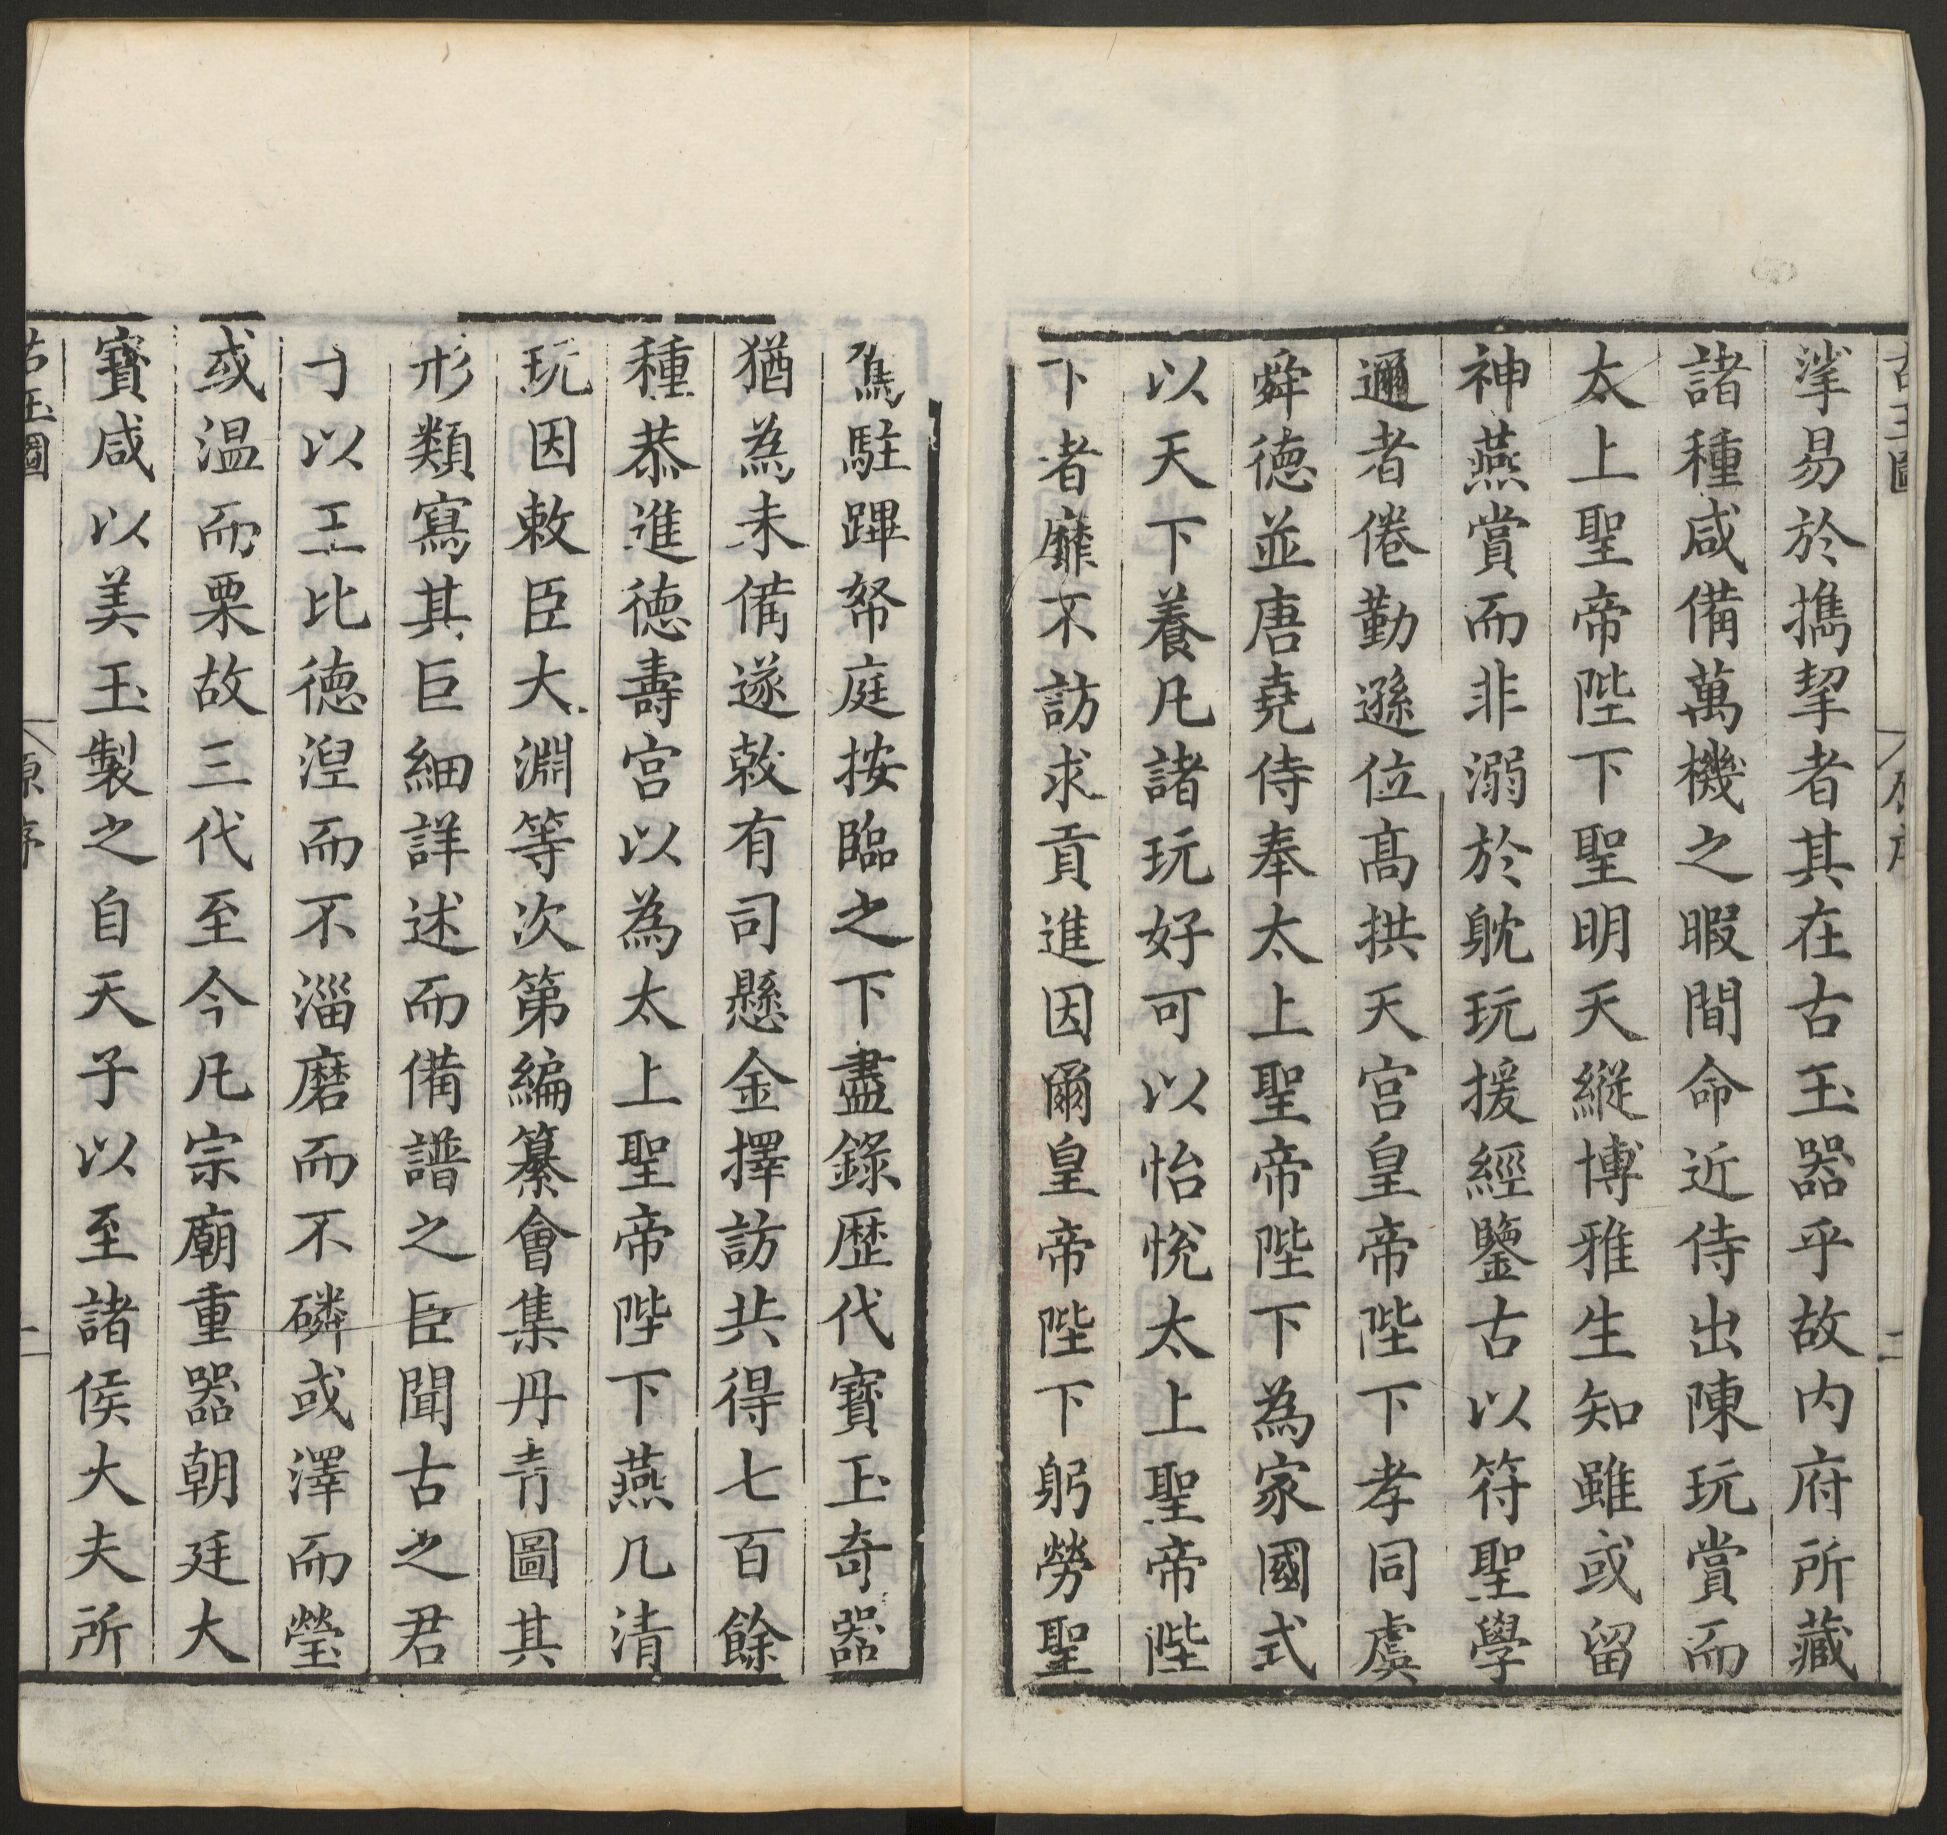 古玉圖
原序
二
挲易於攜挈者其在古玉器乎故内府所藏
諸種咸備萬機之暇間命近侍出陳玩賞而
太上聖帝陛下聖明天縱博雅生知雖或留
神燕賞而非溺於躭玩援經鑒古以符聖學
邇者倦勤遜位髙拱天宫皇帝陛下孝同虞
舜德並唐堯侍奉太上聖帝陛下為家國式
以天下養凡諸玩好可以怡悅太上聖帝陛
下者靡不訪求貢進因爾皇帝陛下躬勞聖
駕駐蹕帑庭按臨之下盡錄歷代寳玉奇器
猶為未備遂敕有司懸金擇訪共得七百餘
種恭進德壽宫以為太上聖帝陛下燕几清
玩因敕臣大淵等次第編纂會集丹青圖其
形類寫其巨細詳述而備譜之臣聞古之君
子以玉比德湼而不淄磨而不磷或澤而瑩
或温而栗故三代至今凡宗廟重器朝廷大
寳咸以美玉製之自天子以至諸侯大夫所
古玉圖
原序
二